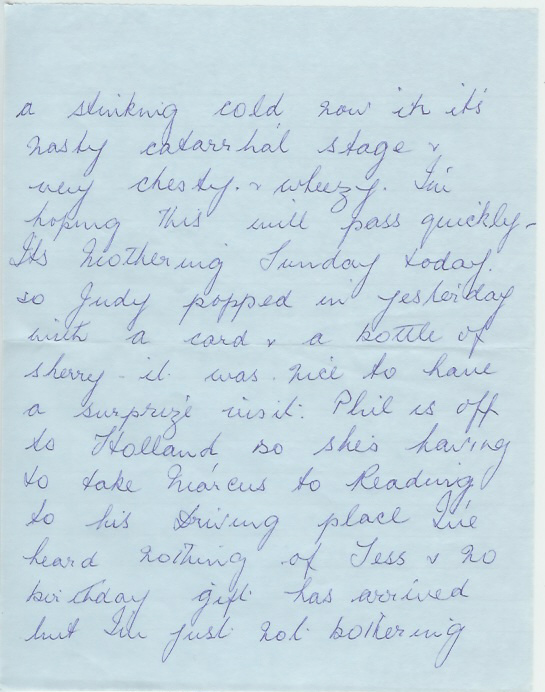 a stinking cold now in it's
nasty catarrhal stage &
very chesty. & wheezy. I'm
hoping this will pass quickly-
Its Mothering Sunday today.
so Judy popped in yesterday
with a card & a bottle of
sherry - it was nice to have
a surprize visit. Phil is off
to Holland so she's having
to take Marcus to Reading
to his driving place I've
heard nothing of Tess & no
birthday gift has arrived
but I'm just not bothering